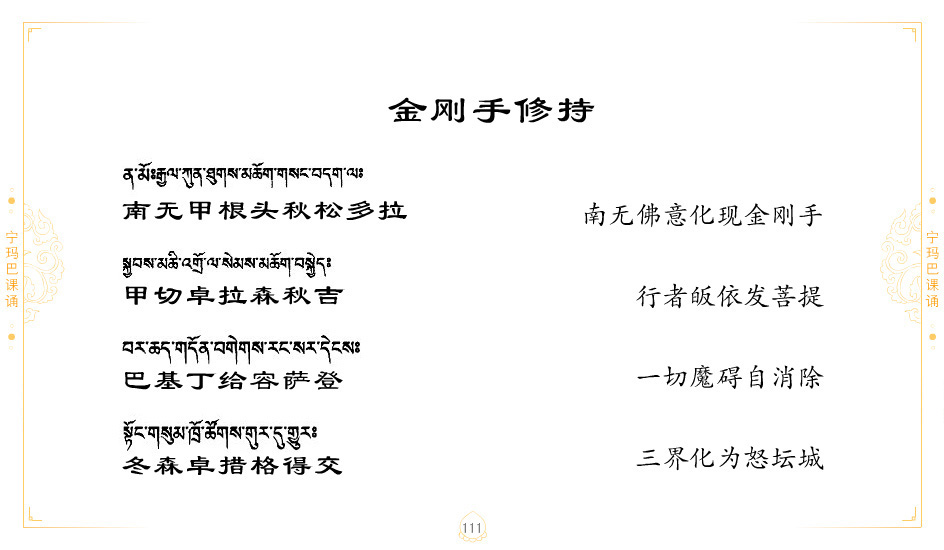 金刚手修持
ན་མོཿརྒྱལ་ཀུན་ཐུགས་མཆོག་གསང་བདག་ལཿ
南无甲根头秋松多拉
南无佛意化现金刚手
སྐྱབས་མཆི་འགྲོ་ལ་སེམས་མཆོག་བསྐྱེདཿ
甲切卓拉森秋吉
行者皈依发菩提
བར་ཆད་གདོན་བགེགས་རང་སར་དེངསཿ
巴基丁给容萨登
一切魔碍自消除
སྟོང་གསུམ་ཁྲོ་ཚོགས་གུར་དུ་གྱུརཿ
冬森卓措格得交
三界化为怒坛城
宁玛巴课诵
宁玛巴课诵
111